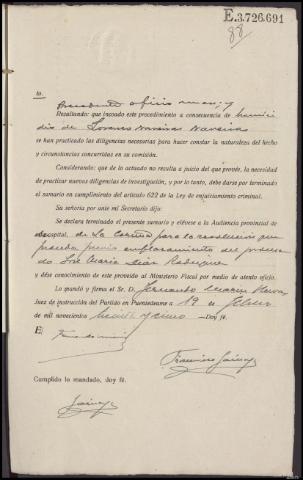 E.3.726.691
88
to.
Precedente oficio únase; y
Resultando: que incoado este procedimiento a consecuencia de homici
dio de Lorenzo Naveiras Naveiras
se han practicado las diligencias necesarias para hacer constar la naturaleza del hecho
y circunstancias concurrentes en su comisión.
Considerando: que de lo actuado no resulta a juicio del que provee, la necesidad
de practicar nuevas diligencias de investigación, y por lo tanto, debe darse por terminado
el sumario en cumplimiento del artículo 622 de la Ley de enjuiciamiento criminal.
Su señoría por ante mí Secretario dijo:
Se declara terminado el presente sumario y elévese a la Audiencia provincial de
capital, de La Coruña para la resolución que
proceda previo emplazamiento del procesa
do José María Díaz Rodríguez
y dése conocimiento de este proveído al Ministerio Fiscal por medio de atento oficio.
Lo mandó y firma el Sr. D. Fernando
Juez de instrucción del Partido en Puentedeume a 19 de Febrero
de mil novecientos veinte y cinco —Doy fé.
E/
Francisco
Cumplido lo mandado, doy fé.